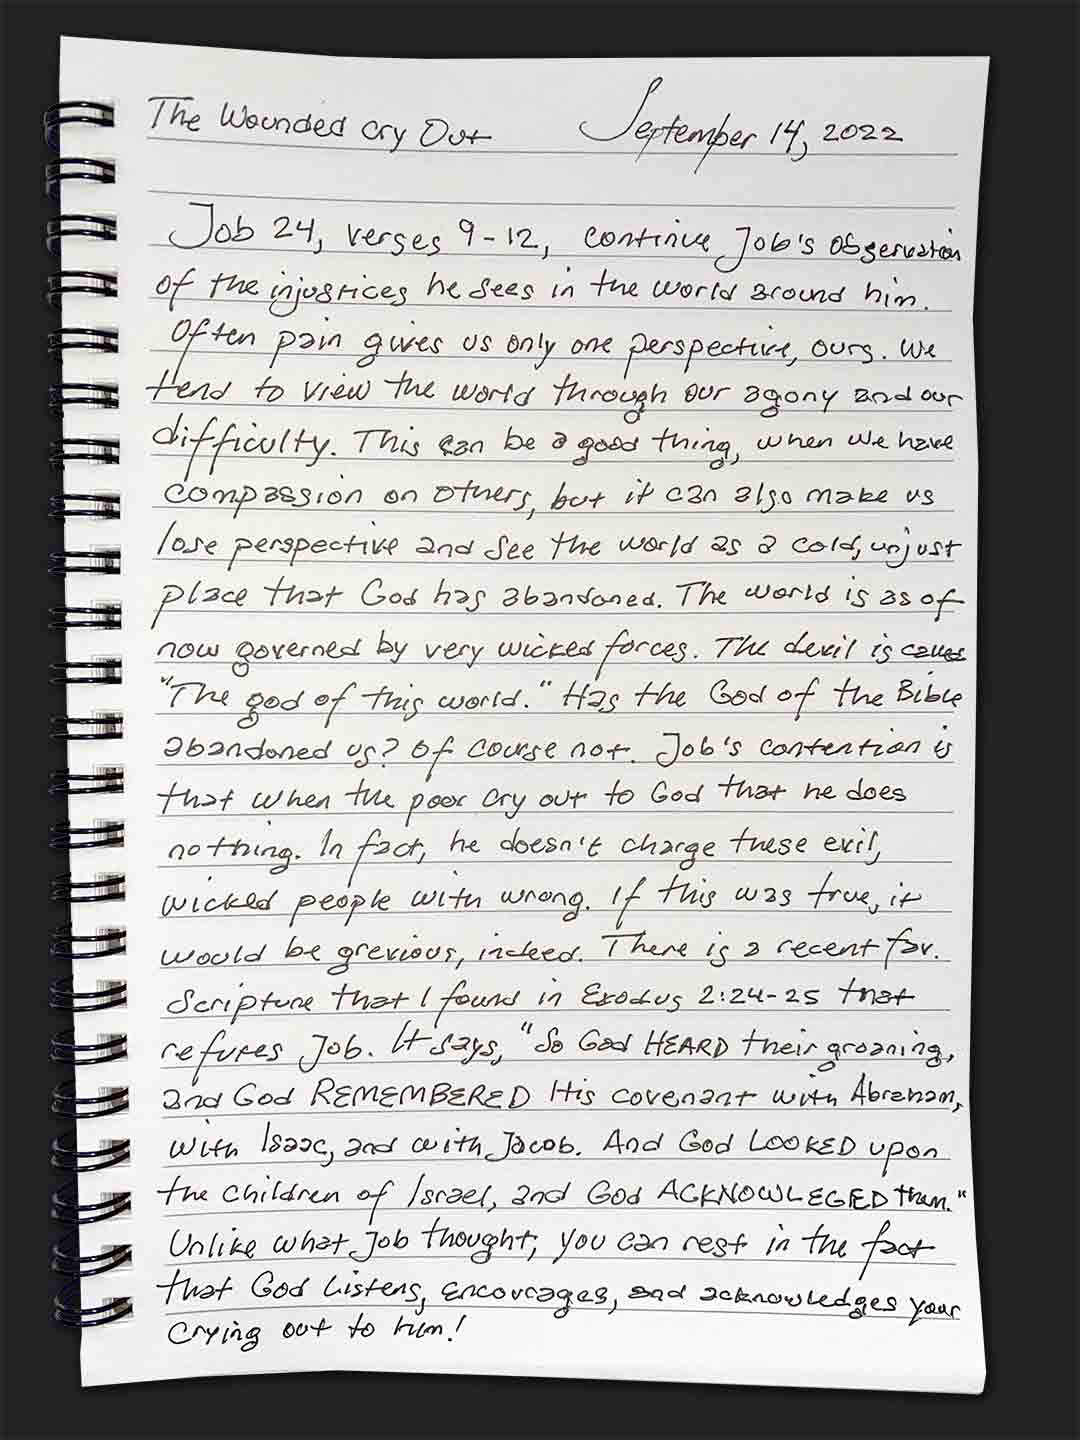 The Wounded Cry Out September 14, 2022
Job 24, verses 9-12, continue Job's observation
of the injustices he sees in the world around him.
Often pain gives us only one perspective, ours. We
tend to view the world through our agony and our
difficulty. This can be a good thing, when we have
compassion on others, but it can also make us
lose perspective and see the world as a cold, unjust
place that God has abandoned. The world is as of
now governed by very wicked forces. The devil is
"The god of this world." Has the God of the Bible
abandoned us? Of course not. Job's contention is
that when the poor cry out to God that he does
nothing. In fact, he doesn't charge these evil,
wicked people with wrong. If this was true, it
would be grevious, indeed. There is a recent fav.
Scripture that I found in Exodus 2:24-25 that
refutes Job. It says, "So God HEARD their groaning,
and God REMEMBERED His covenant with Abraham,
with Isaac, and with Jacob. And God LOOKED upon
the children of Israel, and God ACKNOWLEGED them."
Unlike what Job thought, you can rest in the fact
that God listens, encourages, and acknowledges your
crying out to him!